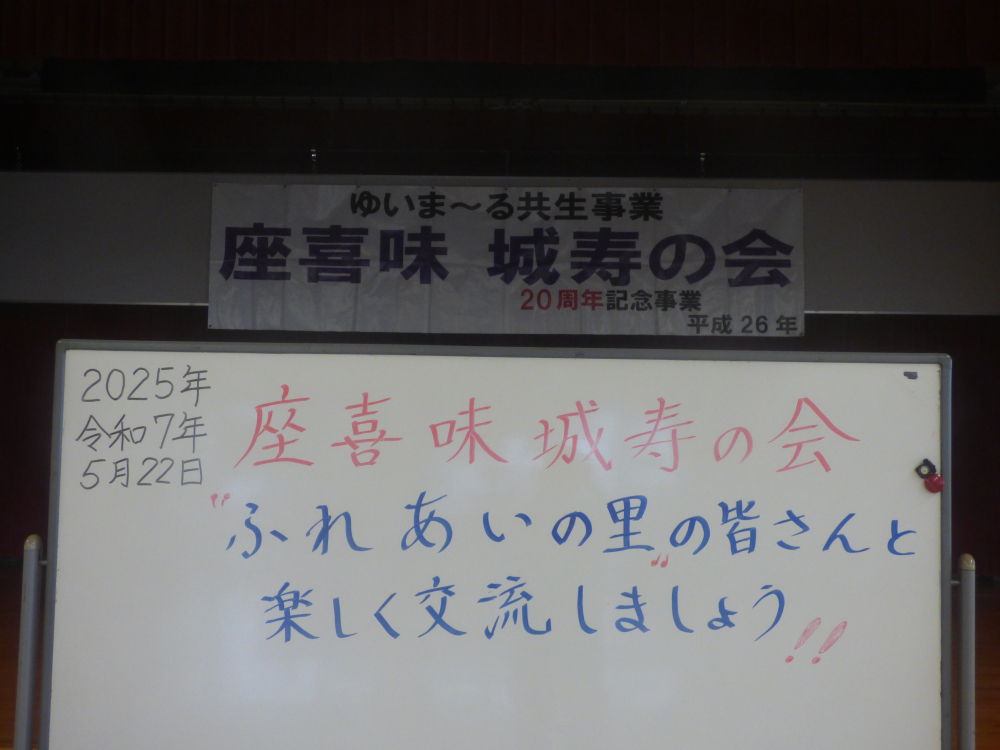 ゆいま～る共生事業
座喜味 城寿の会
20周年記念事業
平成26年
2025年
令和7年
5月22日
座喜味城寿の会
"ふれあいの里"の皆さんと
楽しく交流しましょう!!